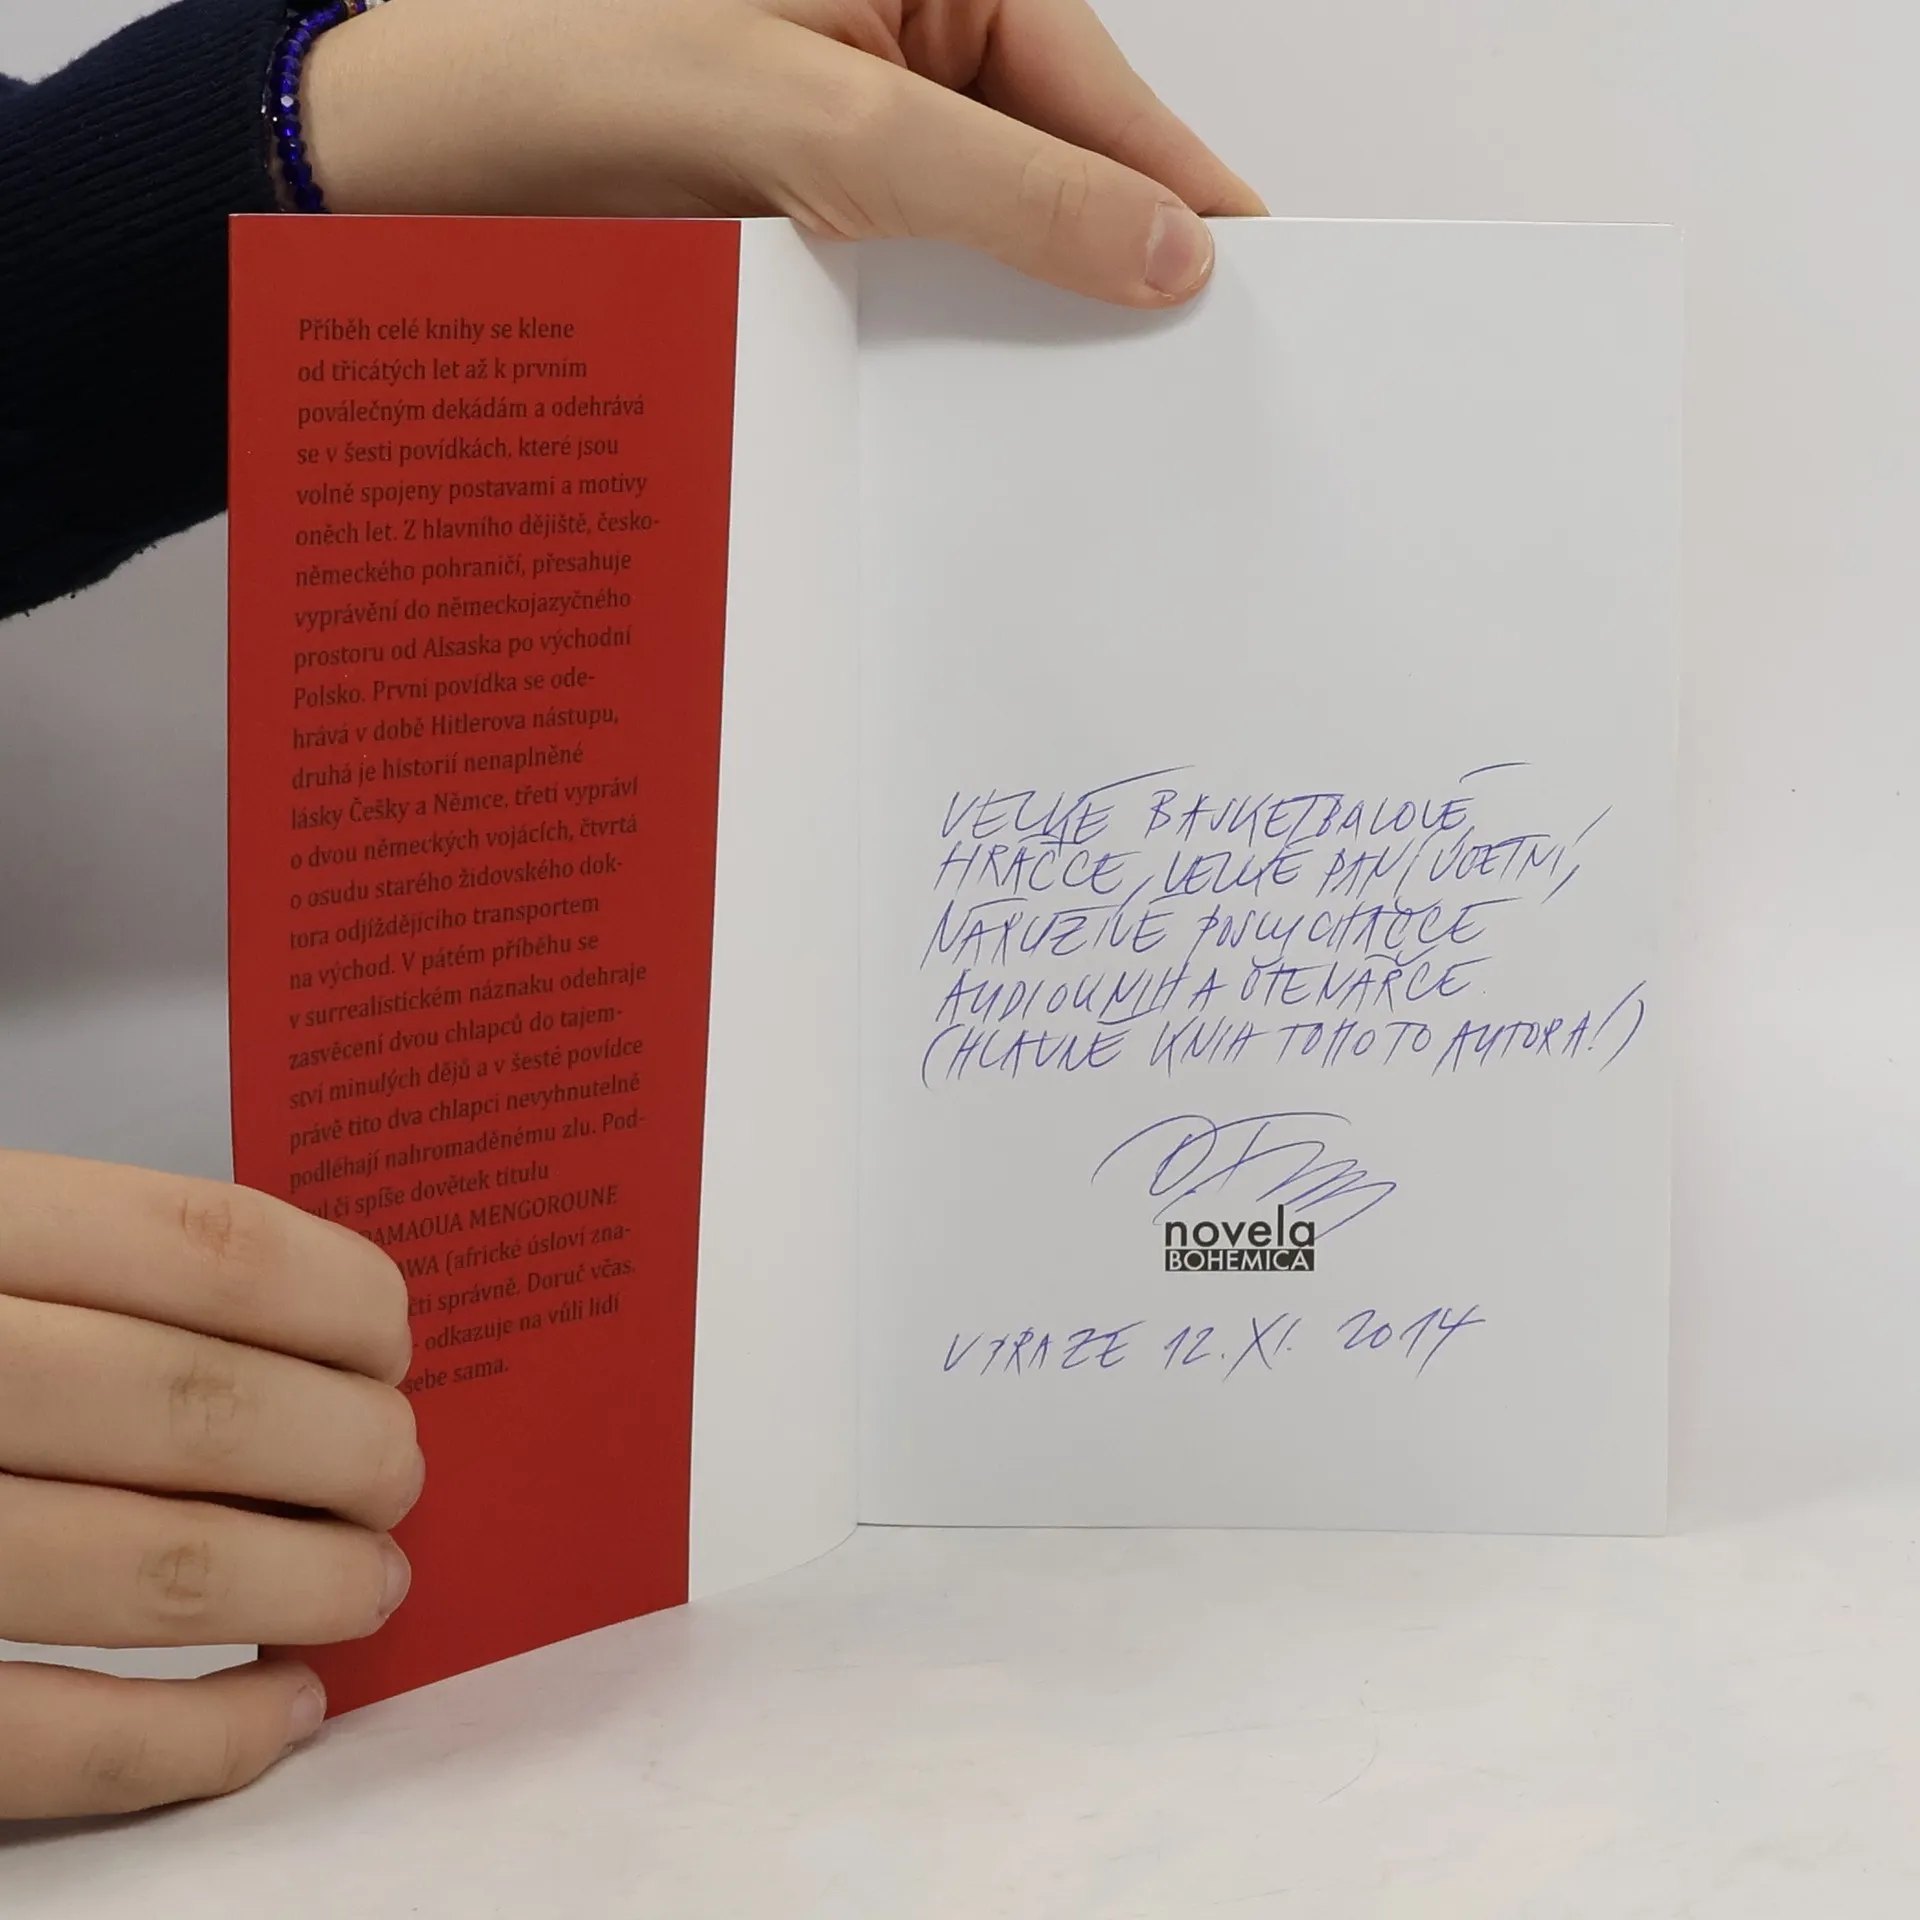 Příběh celé knihy se klene
od třicátých let až k prvním
poválečným dekádám a odehrává
se v šesti povídkách, které jsou
volně spojeny postavami a motivy
oněch let. Z hlavního dějiště, česko-
německého pohraničí, přesahuje
vyprávění do německojazyčného
prostoru od Alsaska po východní
Polsko. První povídka se ode-
hrává v době Hitlerova nástupu,
druhá je historií nenaplněné
lásky Češky a Němce, třetí vypráví
o dvou německých vojácích, čtvrtá
o osudu starého židovského dok-
tora odjíždějícího transportem
na východ. V pátém příběhu se
v surrealistickém náznaku odehraje
zasvěcení dvou chlapců do tajem-
ství minulých dějů a v šesté povídce
právě tito dva chlapci nevyhnutelně
podléhají nahromaděnému zlu. Pod-
ul či spíše dovětek titulu
DAMAOUA MENGOROUNE
AWA (africké úsloví zna-
čti správně. Doruč včas.
- odkazuje na vůli lidí
sebe sama.
VELKÉ BASKETBALOVÉ
HRÁČCE, VELKÉ PANÍ ÚČETNÍ,
NÁRUŽIVÉ POSLUCHAČCE
AUDIOKNIH A ČTENÁŘCE
(HLAVNĚ KNIH TOHOTO AUTORA!)
novela
BOHEMICA
V PRAZE 12. XI. 2014